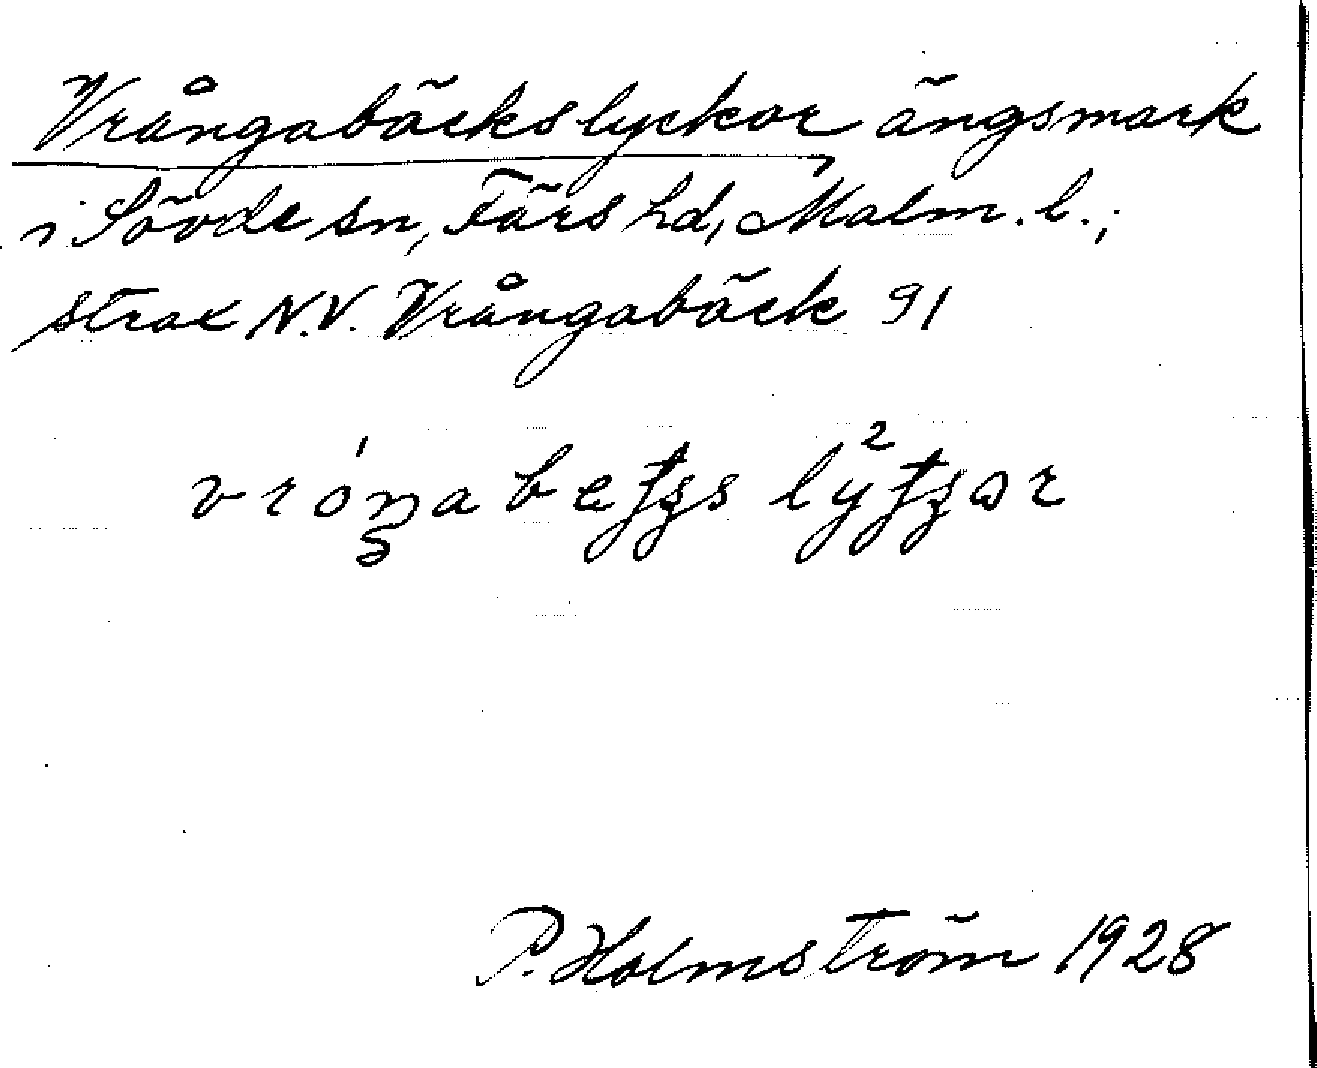 Vrångabäckslyckor, ängsmark
i Sövde sn, Färs hd, Malm. l.;
strax N.V. Vrångabäck 91
P. Holmström 1928